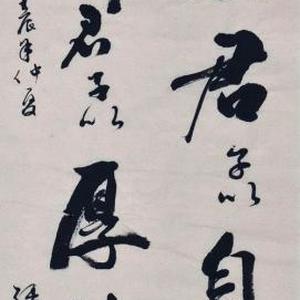 君子以自
君子以厚
辰年仲夏